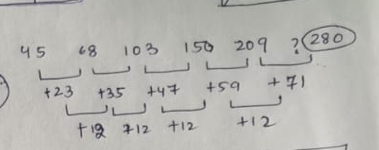 45 68 103 150 209 ? 280
+23 +35 +47 +59 +71
+12 +12 +12 +12